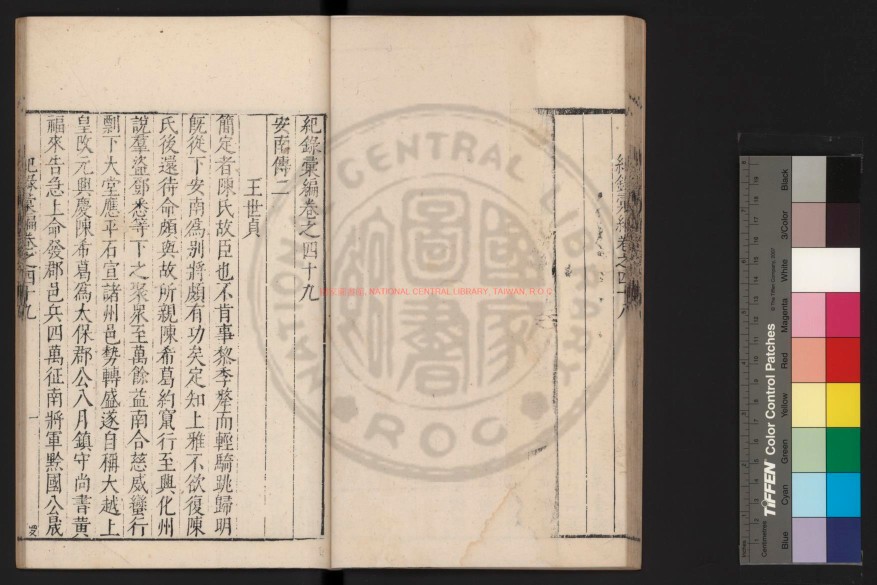 紀錄彙編卷之四十九
安南傳二
王世貞
簡定者陳氏故臣也不肯事黎季犛而輕騎跳歸明
旣從下安南爲别將頗有功矣定知上雅不欲復陳
氏後還待命頗與故所親陳希葛約竄行至興化州
說羣盜鄧悉等下之衆至萬餘益南合慈威蠻行
剽下大堂應平石宣諸州邑勢轉盛遂自稱大越上
皇改元興慶陳希葛爲太保郡公八月鎮守尚書黃
福來告急上命發郡邑兵四萬征南將軍黔國公晟
紀錄彙編卷之四十九
一
紀錄彙編卷之四十八
國家圖書館, NATIONAL CENTRAL LIBRARY, TAIWAN, R.O.C
NATIONAL CENTRAL LIBRARY
ROC
國家圖書館
TIFFEN Color Control Patches
© The Tiffen Company, 2007
Black
3/Color
White
Magenta
Red
Yellow
Green
Cyan
Blue
Inches
Centimetres